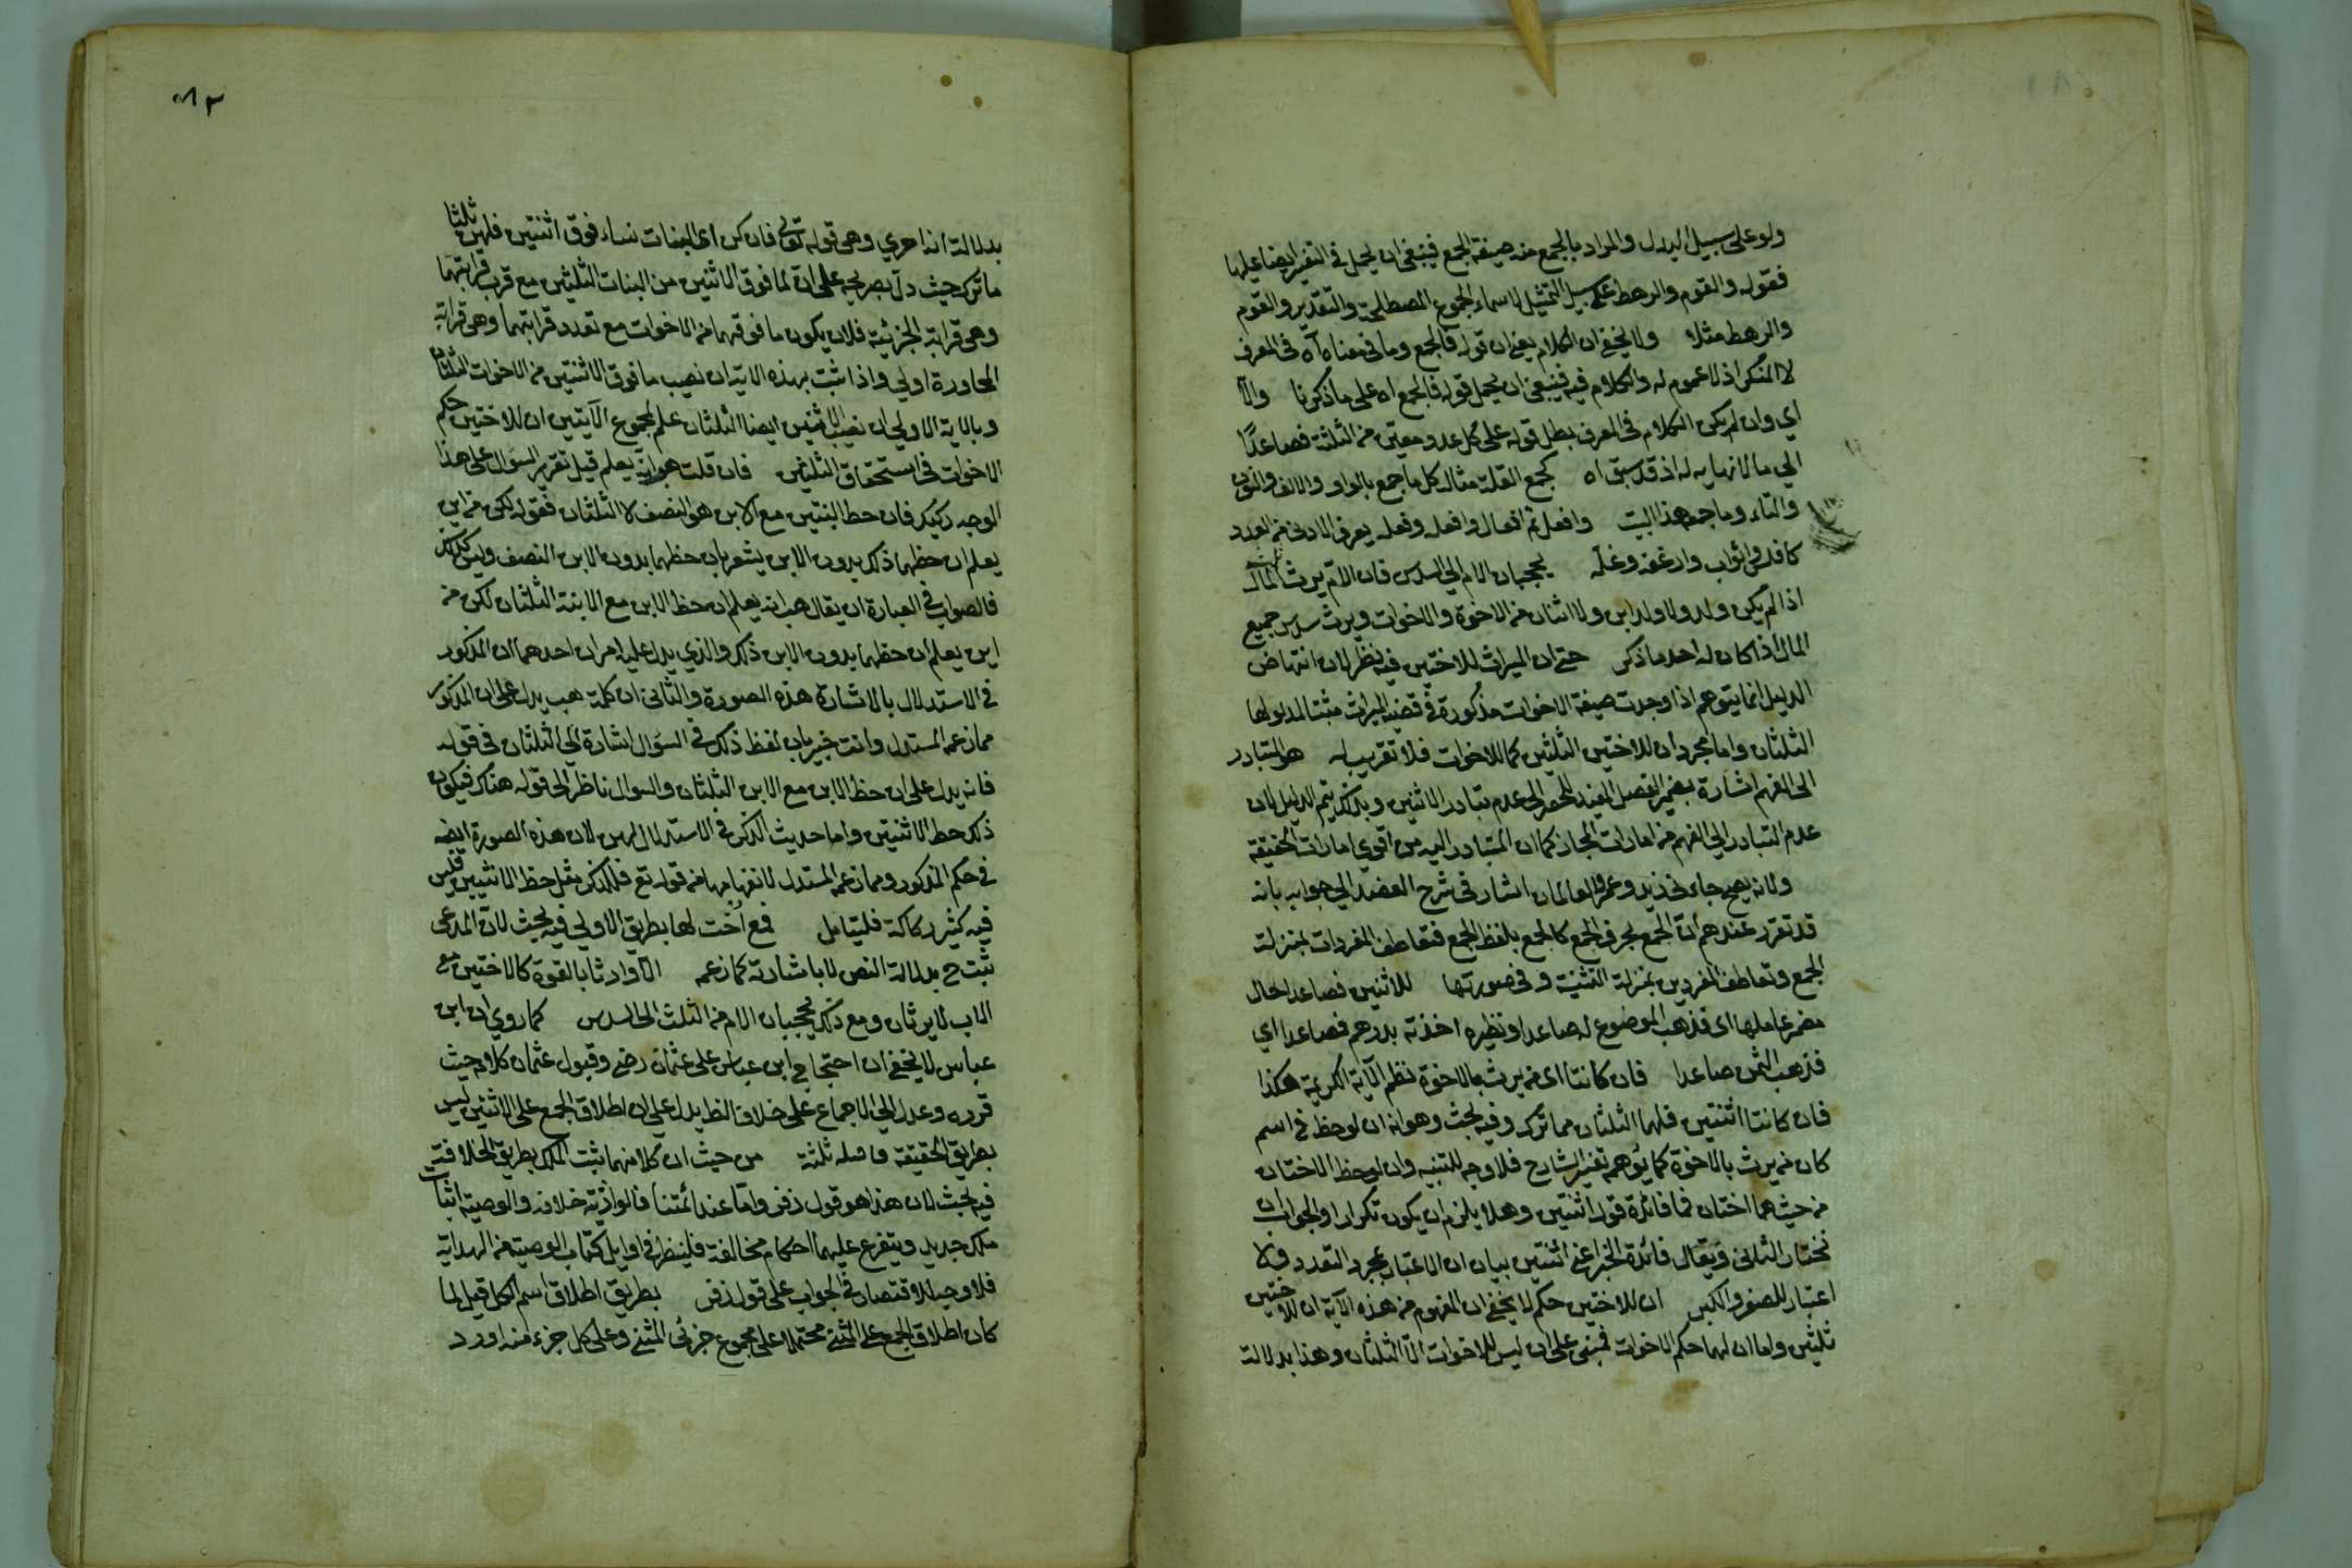 ولو على سبيل البدل والمراد بالجمع من صيغة الجمع فينبغي ان يحمل في التفسير ايضا عليها
فقوله والقوم والرهط على سبيل التمثيل لاسماء الجموع المصطلحة والتقدير والقوم
والرهط مثلا ولا يخفى ان الكلام يعني ان قوله فالجمع وما في معناه آه في المعرف
لا المنكر اذ لا عموم له والكلام فيه فينبغي ان يحمل قوله فالجمع اه على ما ذكرنا والا
اي وان لم يكن الكلام في المعرف بطل قوله على كل عدد معين من الثلثة فصاعدا
الى ما لا نهاية له اذ قد سبق اه كجمع القلة مثاله كل ما جمع بالواو والالف والنون
والتاء وما جمعه هذا البيت وافعل ثم افعال وافعلة وفعلة يعرف الادنى من العدد
كافلس واثواب وارغفة وغلمة يحجبان الام الى السدس فان الام يرث ثلث المال
اذا لم يكن ولد ولا ولد ابن ولا اثنان من الاخوة والاخوات ويرث سدس جميع
المال اذا كان له احد ما ذكر حتى ان الميراث للاختين فيه نظر لان انتهاض
الدليل انما يتوهم اذا وجدت صيغة الاخوات مذكورة في قضية الميراث مثبتا لمدلولها
الثلثان واما مجرد ان للاختين الثلثين كما للاخوات فلا تقريب له هو المتبادر
الى الفهم اشارة بضمير الفصل المفيد للحصر الى عدم تبادر الاثنين وبذلك يتم الدليل لان
عدم التبادر الى الفهم من امارات المجاز كما ان المتبادر اليه من اقوى امارات الحقيقة
ولانه يصح جاءني زيد وعمرو العالمان اشار في شرح العضد الى جوابه بانه
قد تقرر عندهم ان الجمع بحرف الجمع كالجمع بلفظ الجمع فتعاطف المفردات بمنزلة
الجمع وتعاطف المفردين بمنزلة التثنية وفي صورتها للاثنين فصاعدا حال
مضمر عاملها اى فذهب الموضوع له صاعدا ونظيره اخذته بدرهم فصاعدا اي
فذهب الثمن صاعدا فان كانتا اى من يرث بالاخوة نظم الآية الكريمة هكذا
فان كانتا اثنتين فلهما الثلثان مما ترك وفيه بحث وهو انه ان لوحظ في اسم
كان من يرث بالاخوة كما يوهمه تفسير الشارح فلا وجه للتثنية وان لوحظ الاختان
من حيث هما اختان فما فائدة قوله اثنتين وهلا يلزم ان يكون تكرارا والجواب ان
نختار الثاني ويقال فائدة الخبر اعني اثنتين بيان ان الاعتبار بمجرد التعدد ولا
اعتبار للصغر والكبر ان للاختين حكم لا يخفى ان المفهوم من هذه الآية ان للاختين
ثلثين واما ان لهما حكم الاخوات فمبني على ان ليس للاخوات الا الثلثان وهذا بدلالة
٣٨٢
بدلالة اخرى وهي قوله تعالى فان كن اى البنات نساء فوق اثنتين فلهن ثلثا
ما ترك حيث دل بصريحه على ان لما فوق الاثنين من البنات الثلثين مع قرب قرابتهما
وهي قرابة الجزئية فلان يكون ما فوقهما من الاخوات مع تعدد قرابتهما وهي قرابة
المجاورة اولى واذا ثبت بهذه الاية ان نصيب ما فوق الاثنتين من الاخوات الثلثان
وبالاية الاولى ان نصيب الاثنتين ايضا الثلثان علم بمجموع الآيتين ان للاختين حكم
الاخوات في استحقاق الثلثين فان قلت هب انه يعلم قيل تقرير السؤال على هذا
الوجه ركيك فان حظ البنتين مع الابن هو النصف لا الثلثان فقوله لكن من اين
يعلم ان حظهما ذلك بدون الابن يشعر بان حظهما بدون الابن النصف وليس كذلك
فالصواب في العبارة ان يقال هب انه يعلم ان حظ الابن مع الابنة الثلثان لكن من
اين يعلم ان حظهما بدون الابن ذلك والذي يدل عليه امران احدهما ان المذكور
في الاستدلال بالاشارة هذه الصورة والثاني ان كلمة هب يدل على ان المذكور
مما زعمه المستدل وانت خبير بان لفظ ذلك في السؤال اشارة الى الثلثان في قوله
فانه يدل على ان حظ الابن مع الابن الثلثان والسوال ناظر الى قوله هناك فيكون
ذلك حظ الاثنتين واما حديث الذكر في الاستدلال لان هذه الصورة ايضه
في حكم المذكور ومما زعمه المستدل لانفهامها من قوله تع فللذكر مثل حظ الانثيين فليس
فيه كثير ركاكة فليتأمل فمع اخت لها بطريق الاولى فيه بحث لان المدعى
ثبت ح بدلالة النص لا باشارته كما زعمه الا وارثا بالقوة كالاختين مع
الاب لا يرثان ومع ذلك يحجبان الام من الثلث الى السدس كما روي ان ابن
عباس لا يخفى ان احتجاج ابن عباس على عثمان رضي وقبول عثمان كلامه حيث
قرره وعدل الى الاجماع على خلاف الظ يدل على ان اطلاق الجمع على الاثنين ليس
بطريق الحقيقة فاصله ثلثة من حيث ان كلا منهما ثبت الملك بطريق الخلافة
فيه بحث لان هذا هو قول زفر واما عند ائمتنا فالوراثة خلافة والوصية اثبات
ملك جديد ويتفرع عليهما احكام مخالفة فلينظر في اوايل كتاب الوصية من الهداية
فلا وجه للاقتصار في الجواب على قول زفر بطريق اطلاق اسم الكل قيل لما
كان اطلاق الجمع على المثنى محتملا على مجموع جزئى المثنى وعلى كل جزء منه اورد